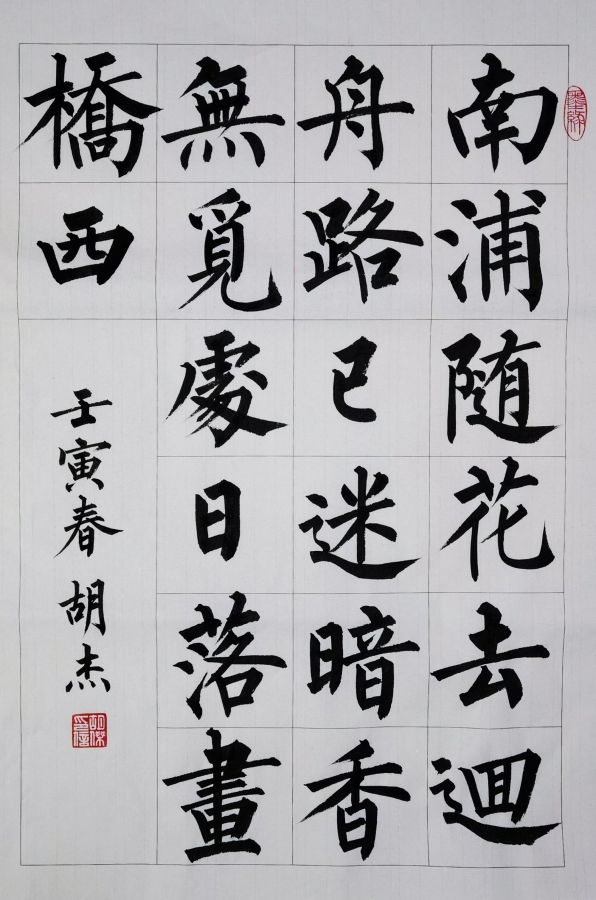 南浦随花去迴
舟路已迷暗香
無覓處日落畫
橋西
壬寅春胡杰